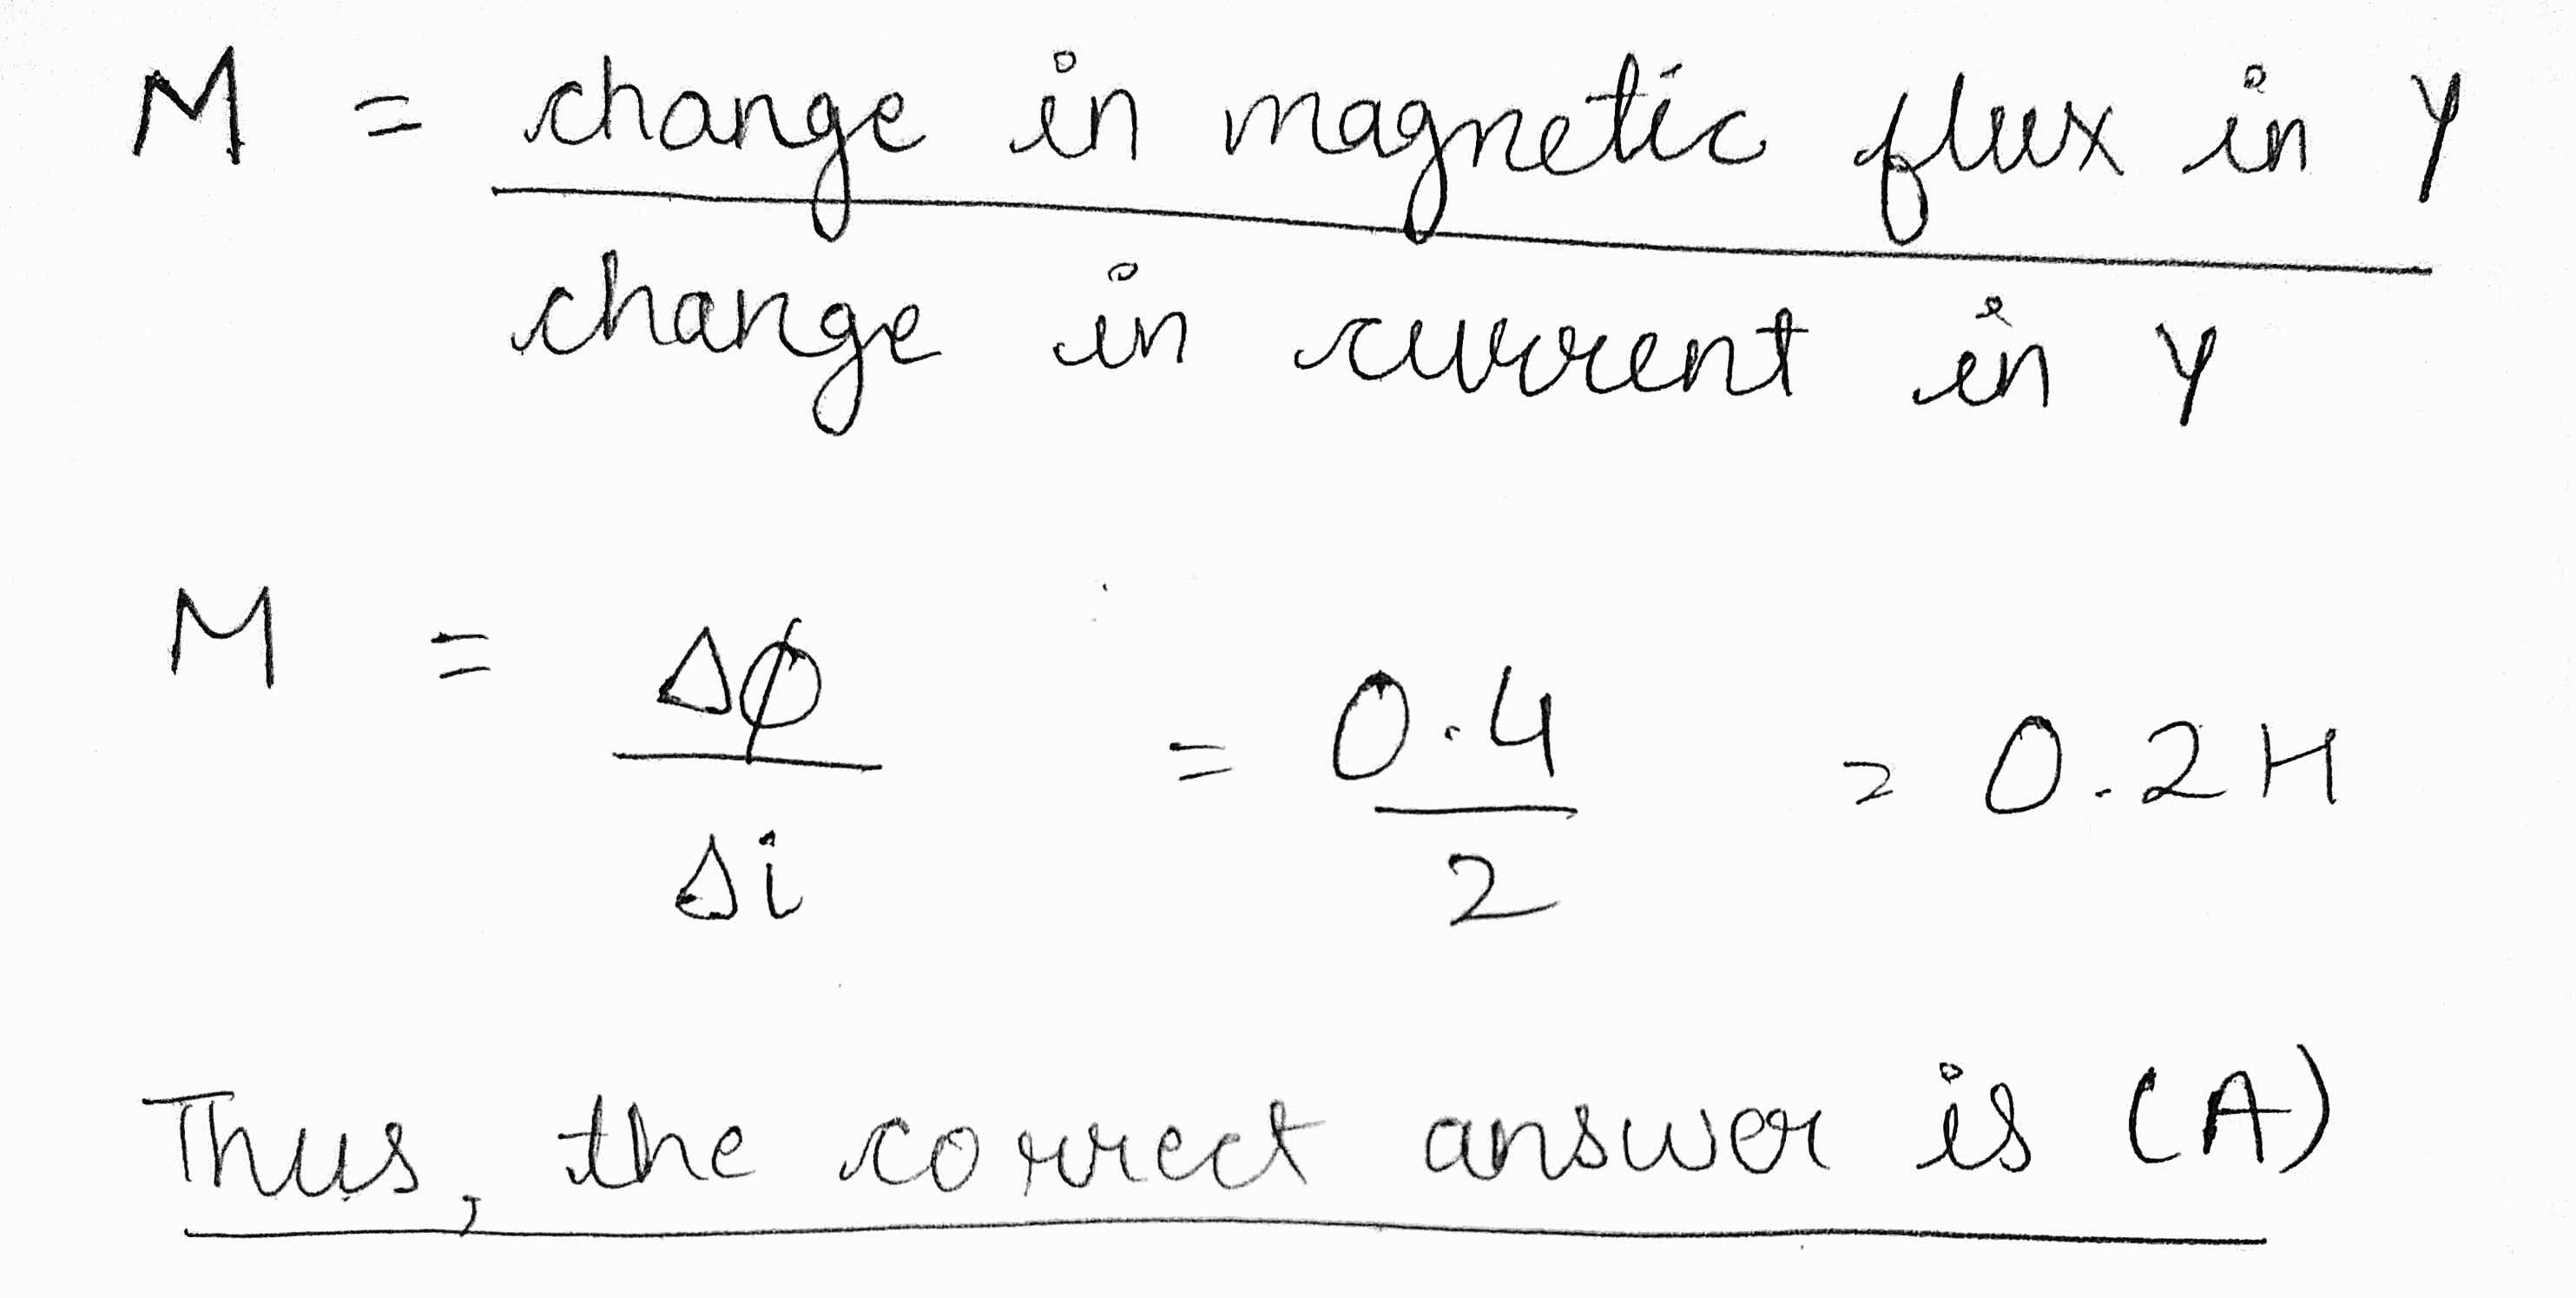 M = change in magnetic flux in Y
change in current in Y
M = Δϕ / Δi = 0.4 / 2 = 0.2H
Thus, the correct answer is (A)